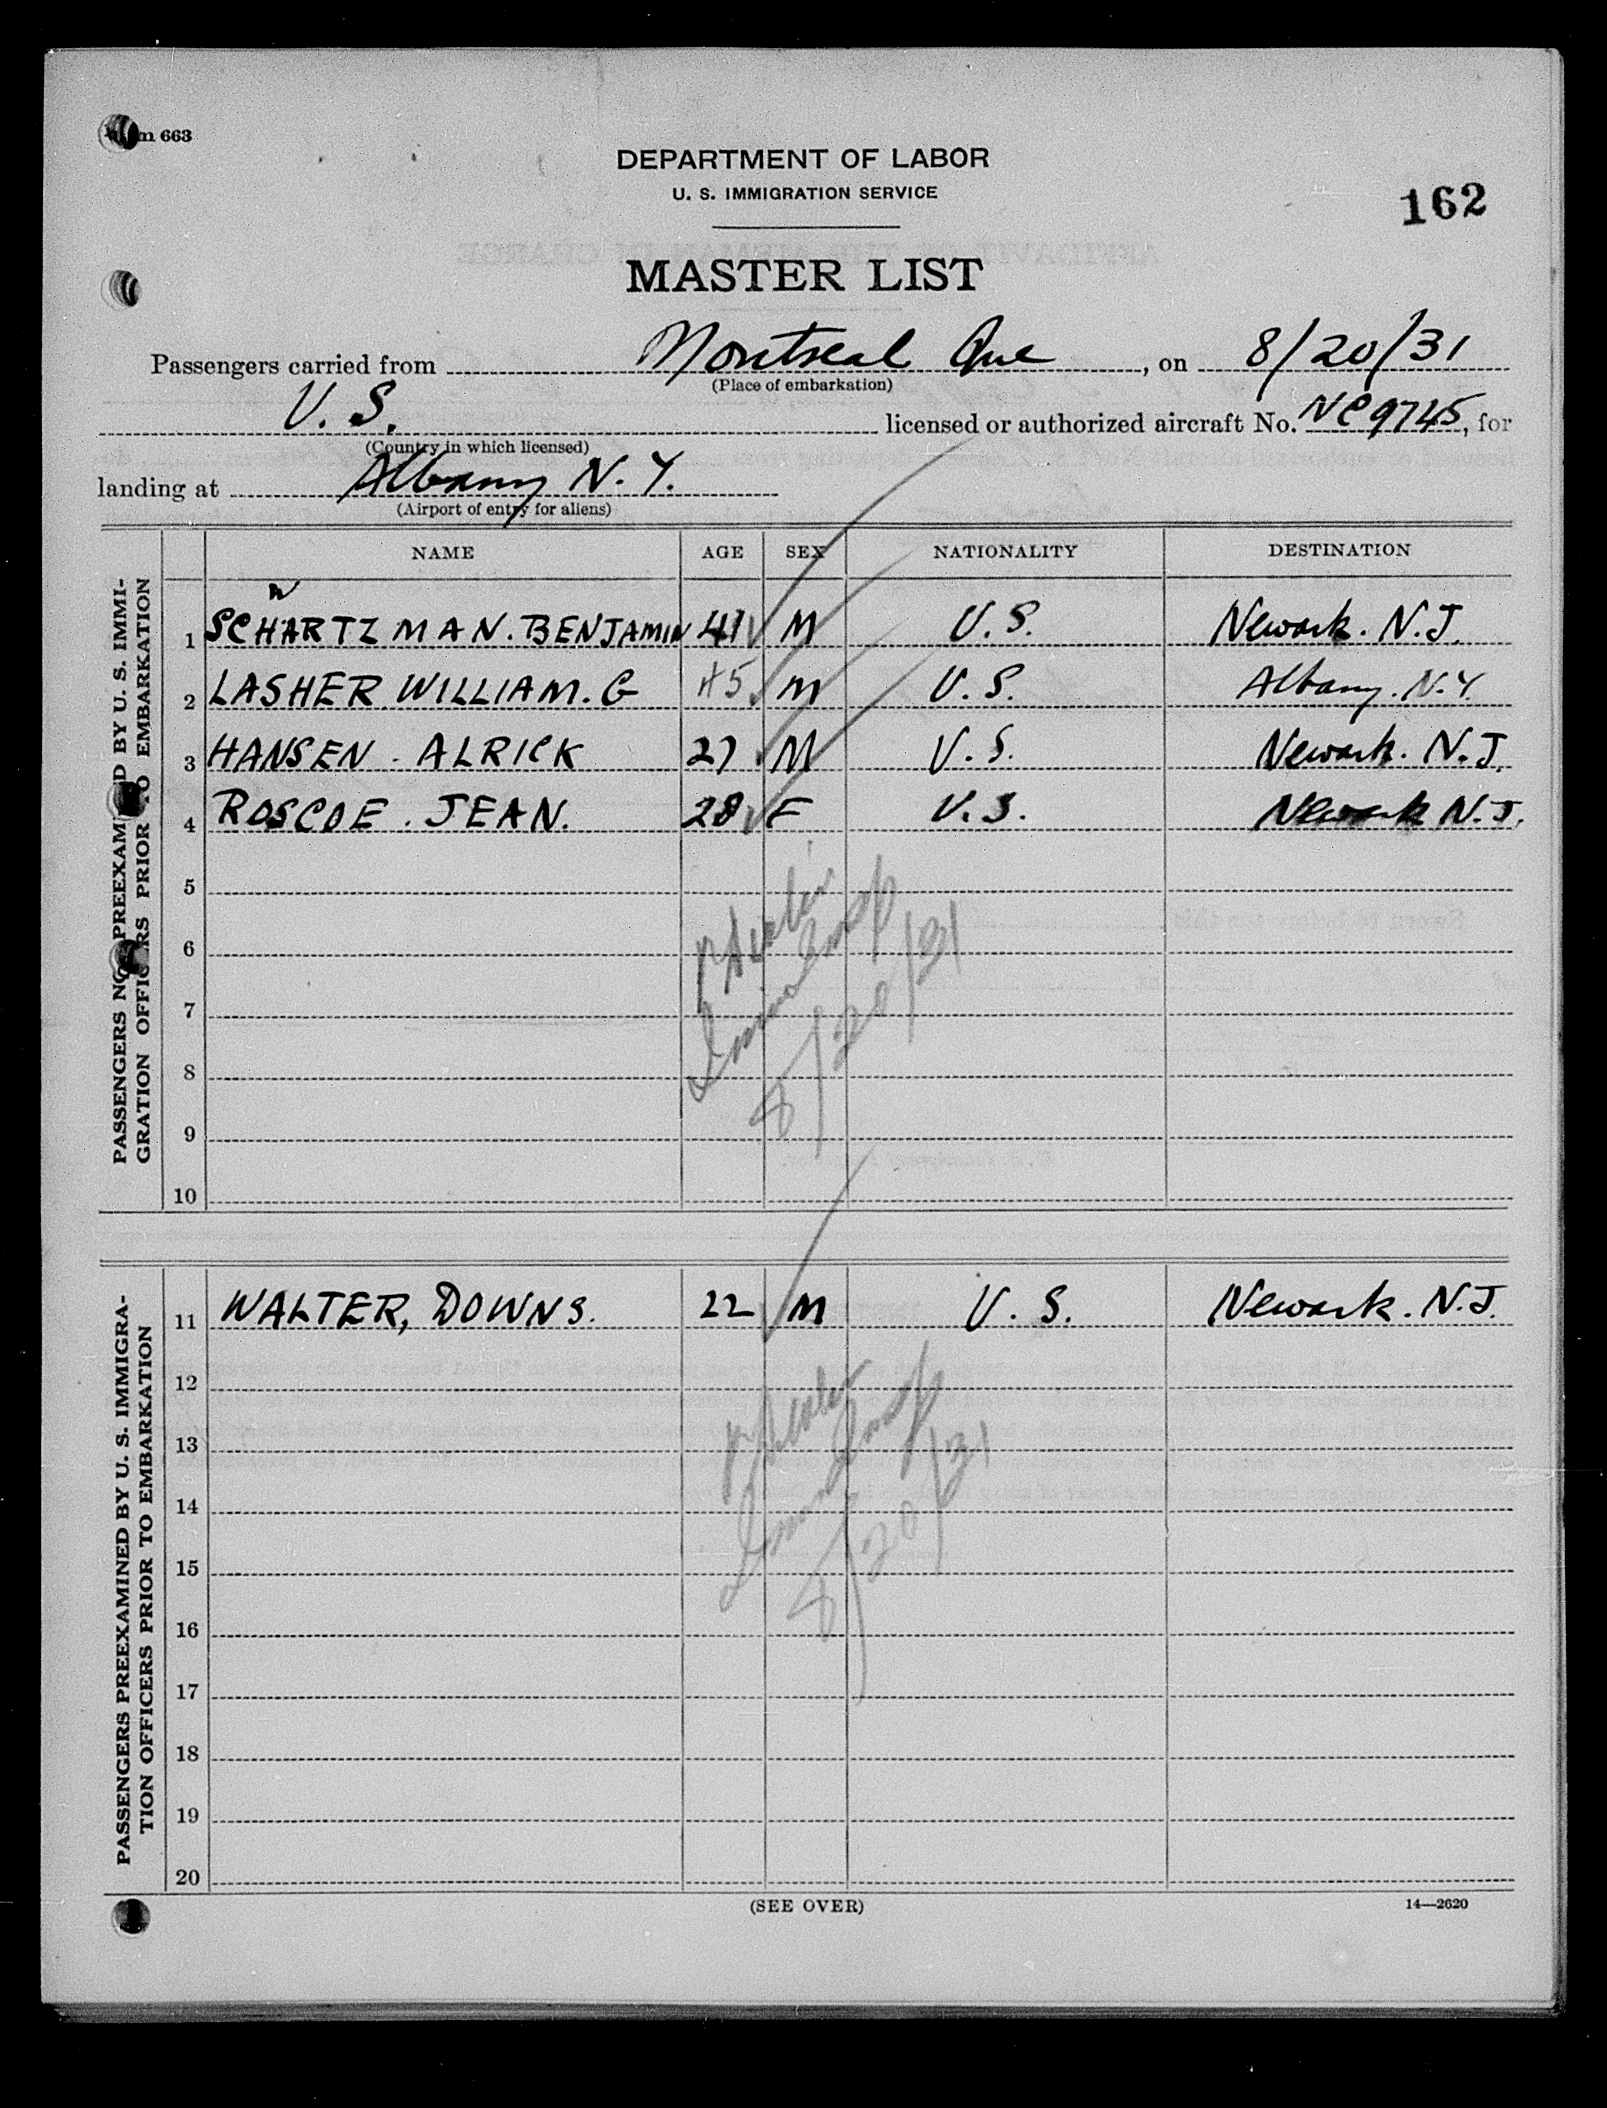 663
DEPARTMENT OF LABOR
U. S. IMMIGRATION SERVICE
162
MASTER LIST
Passengers carried from Montreal Que, on 8/20/31
(Place of embarkation)
U. S. licensed or authorized aircraft No. NC9745, for
(Country in which licensed)
landing at Albany N. Y.
(Airport of entry for aliens)
NAME AGE SEX NATIONALITY DESTINATION
PASSENGERS NOT PREEXAMINED BY U. S. IMMI-
GRATION OFFICERS PRIOR TO EMBARKATION
W
1 SCHARTZMAN. BENJAMIN 41 M U. S. Newark. N. J.
2 LASHER WILLIAM. G 45 M U. S. Albany. N. Y.
3 HANSEN. ALRICK 27 M U. S. Newark. N. J.
4 ROSCOE. JEAN. 28 F U. S. Newark N. J.
5
6
7
8
9
10
Immig Insp
8/20/31
PASSENGERS PREEXAMINED BY U. S. IMMIGRA-
TION OFFICERS PRIOR TO EMBARKATION
11 WALTER, DOWNS. 22 M U. S. Newark. N. J.
12
13
14
15
16
17
18
19
20
Immig Insp
8/20/31
(SEE OVER)
14—2620